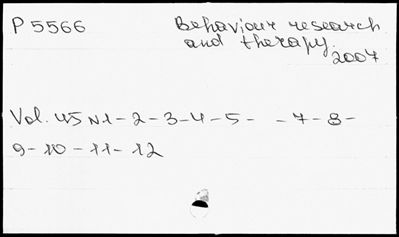 P 5566 Behaviour research
and therapy.
2007
Vol. 45 N1-2-3-4-5- -7-8-
9-10-11-12